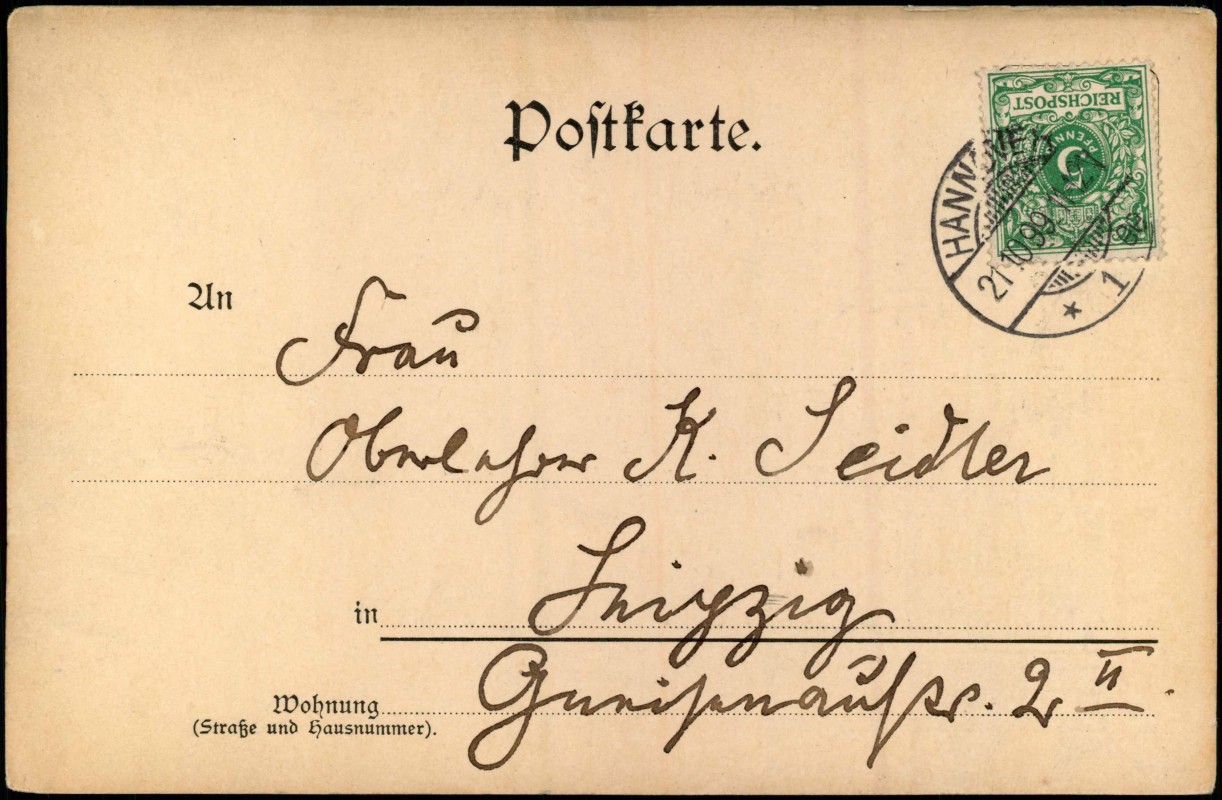 Postkarte.
REICHSPOST
5
PFENNIG
HANNOVER
21.10.99
* 1
An
Frau
Oberlehrer K. Seidler
in Leipzig
Wohnung Gneisenaustr. 2 II.
(Straße und Hausnummer).